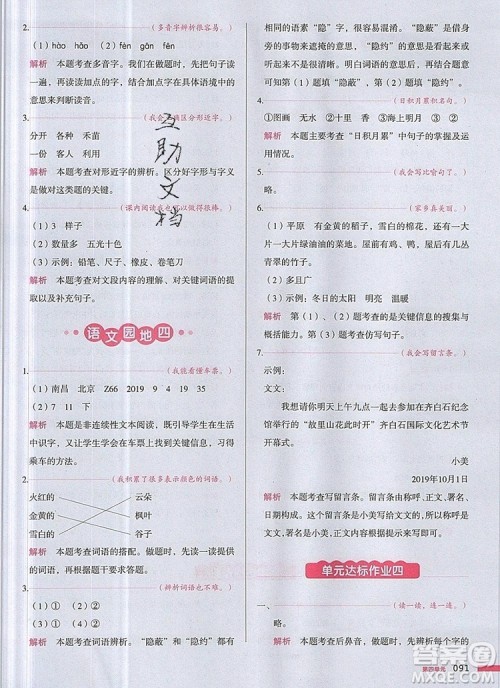 2.（多音字辨析很容易。）
（1）hào hǎo （2）fēn gěn fèn
解析 本题考查多音字。可以先把句子读一
读，再读加点的字在具体语境中的
意思来判断读音。
3.（我会区分形近字。）
分开 各种 禾苗
一份 客人 利用
解析 本题考查对形近字的辨析。区分好字形与字义
是做对这类题的关键。
4.（课内阅读我也可以做得很棒。）
（1）3 样子
（2）数量多 五光十色
（3）示例：铅笔、尺子、橡皮、卷笔刀
解析 本题考查对文段内容的理解、对关键词语的提
取以及补充句子。
互助文档
语文园地四
1.（我会看懂车票。）
（1）南昌 北京 Z66 2019 9 4 19 35
（2）7 11 下
解析 本题是非连续性文本阅读，既引导学生在生活
中识字，又让学生学会在车票上提取信息，有利于
乘车的方便。
2.（我积累了很多表示颜色的词语。）
火红的 云朵
金黄的 枫叶
雪白的 谷子
解析 本题考查词语的搭配。做题时，可先读一读词
语，再进行搭配。
3.（辨析词语也不难。）
（1）② ① （2）① ②
解析 本题考查词语辨析。“隐蔽”和“隐约”都有
相同的语素“隐”字，容易混淆。“隐蔽”是指借
旁边的事物来遮掩，“隐约”指看起来或听起来不
很清楚。第（1）题填“隐蔽”，第（2）题填“隐约”。
4.（日积月累积名句。）
①图画 无水 ②十里 ③海上明月 ④③ ②
解析 本题主要考查“日积月累”中句子的掌握及运
用情况。
5.（我会写比喻句了。）
6.（家乡真美丽。）
（1）平原 有金黄的稻子，雪白的棉花，还有一大
片一大片绿油油的菜地。 前后左右都有几丛
青翠的竹子。
（2）多且广
（3）示例：冬日的太阳 明亮 温暖
解析 第（1）、（2）题考查的是关键信息的搜集与
概括能力。第（3）题考查仿写句子。
7.（我会写留言条。）
示例：
文文：
我想请你明天上午九点一起到齐白石纪念馆
参加“故里山花此时开”齐白石国际文化艺术节
开幕式。
小美
2019年10月1日
解析 本题考查写留言条。注意格式：称呼、正文、署名、
日期都要写完整。本题是小美写给文文的，所以称呼是
文文，署名是小美。
单元达标作业四
一、（读一读，连一连。）
解析 本题考查后鼻音，做题时我们可以先大声朗
第四单元 091